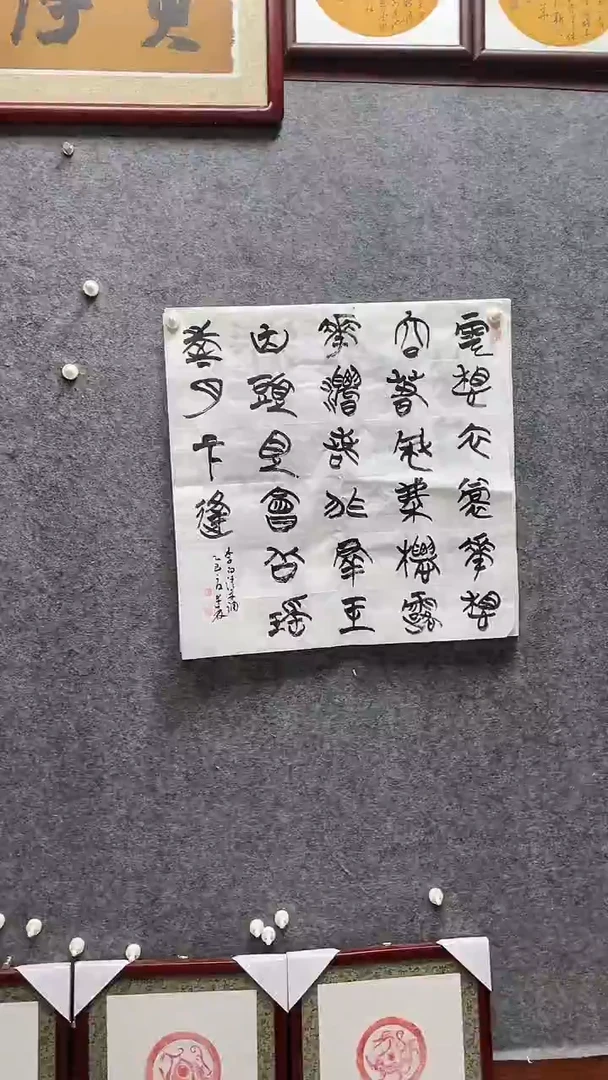 雲想衣裳華想
容春風拂檻露
華濃若非群玉
山頭見會向瑤
臺月下逢
李白清平調
乙巳夏